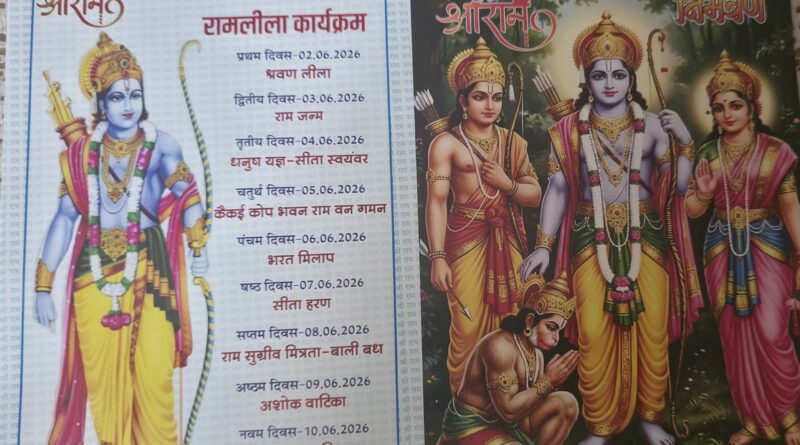 श्रीराम
रामलीला कार्यक्रम
प्रथम दिवस-02.06.2026
श्रवण लीला
द्वितीय दिवस-03.06.2026
राम जन्म
तृतीय दिवस-04.06.2026
धनुष यज्ञ-सीता स्वयंवर
चतुर्थ दिवस-05.06.2026
कैकई कोप भवन राम वन गमन
पंचम दिवस-06.06.2026
भरत मिलाप
षष्ठ दिवस-07.06.2026
सीता हरण
सप्तम दिवस-08.06.2026
राम सुग्रीव मित्रता-बाली बध
अष्ठम दिवस-09.06.2026
अशोक वाटिका
नवम दिवस-10.06.2026
श्रीराम